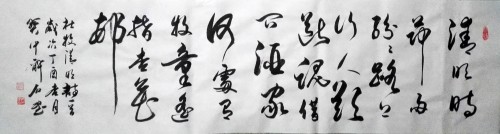 清明時
節雨
紛紛路上
行人欲
斷魂借
问酒家
何處有
牧童遥
指杏花
邨
杜牧清明詩一首
歲次丁酉月
仲石書